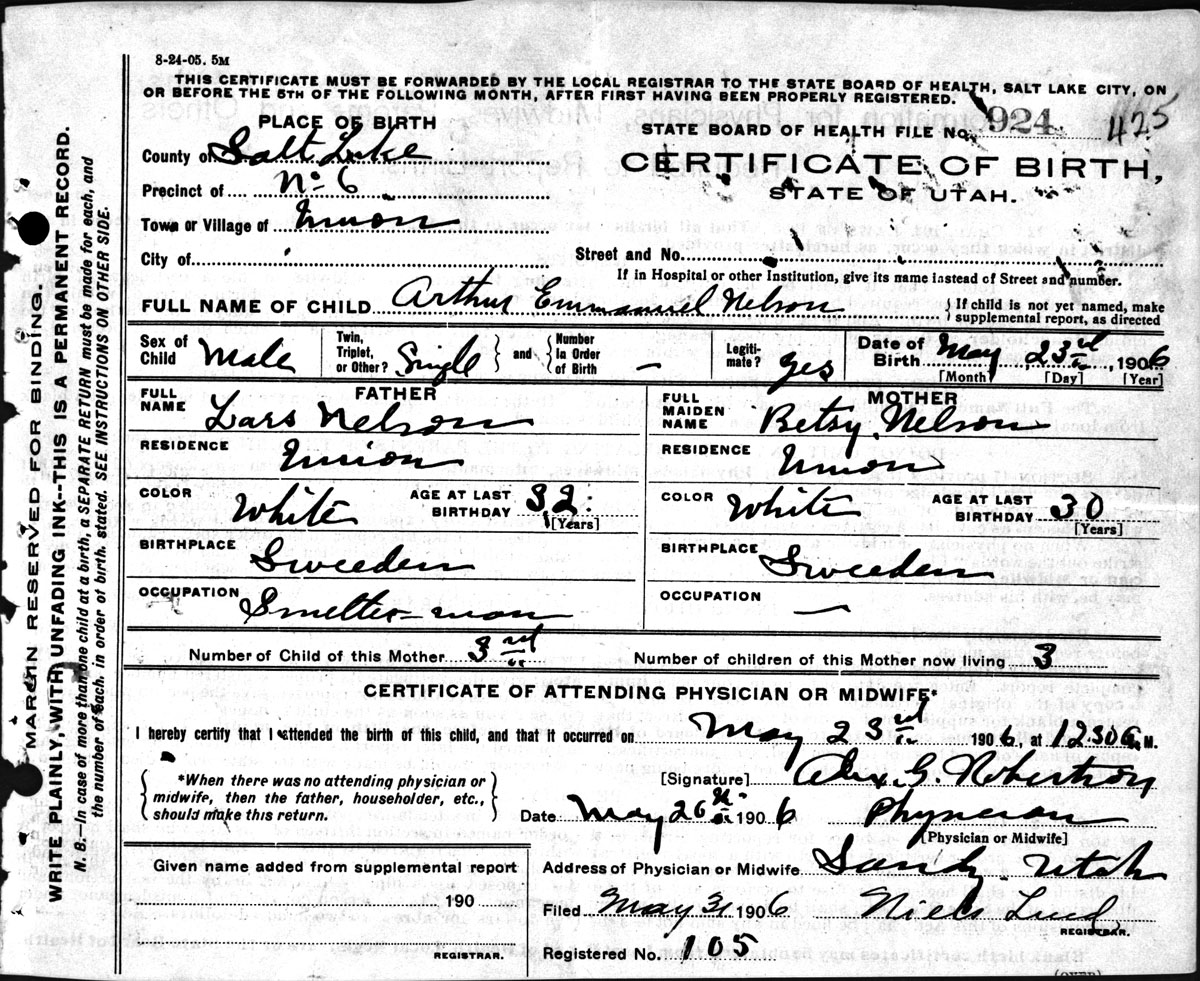 8-24-05. 5M
THIS CERTIFICATE MUST BE FORWARDED BY THE LOCAL REGISTRAR TO THE STATE BOARD OF HEALTH, SALT LAKE CITY, ON
OR BEFORE THE 5TH OF THE FOLLOWING MONTH, AFTER FIRST HAVING BEEN PROPERLY REGISTERED.
PLACE OF BIRTH
County of Salt Lake
Precinct of No 6
Town or Village of Union
City of
STATE BOARD OF HEALTH FILE No. 924 425
CERTIFICATE OF BIRTH,
STATE OF UTAH.
Street and No.
If in Hospital or other Institution, give its name instead of Street and number.
FULL NAME OF CHILD Arthur Emmanuel Nelson { If child is not yet named, make
supplemental report, as directed
Sex of Child Male
Twin, Triplet, or Other? Single } and { Number in Order of Birth —
Legiti-mate? yes
Date of Birth May 23rd, 1906
[Month] [Day] [Year]
FATHER
FULL NAME Lars Nelson
RESIDENCE Union
COLOR White AGE AT LAST BIRTHDAY 32
[Years]
BIRTHPLACE Sweeden
OCCUPATION Smelter-man
MOTHER
FULL MAIDEN NAME Betsy Nelson
RESIDENCE Union
COLOR White AGE AT LAST BIRTHDAY 30
[Years]
BIRTHPLACE Sweeden
OCCUPATION —
Number of Child of this Mother 3rd Number of children of this Mother now living 3
CERTIFICATE OF ATTENDING PHYSICIAN OR MIDWIFE*
I hereby certify that I attended the birth of this child, and that it occurred on May 23rd 1906, at 1230 a. M.
{ *When there was no attending physician or
midwife, then the father, householder, etc.,
should make this return. }
[Signature] Alex. G. Robertson
Date May 26th 1906 Physician
[Physician or Midwife]
Address of Physician or Midwife Sandy Utah
Filed May 31 1906 Niels Lind
REGISTRAR.
Registered No. 105
Given name added from supplemental report
190
REGISTRAR.
(OVER)
MARGIN RESERVED FOR BINDING.
WRITE PLAINLY, WITH UNFADING INK--THIS IS A PERMANENT RECORD.
N. B.—In case of more than one child at a birth, a SEPARATE RETURN must be made for each, and
the number of each, in order of birth, stated. SEE INSTRUCTIONS ON OTHER SIDE.